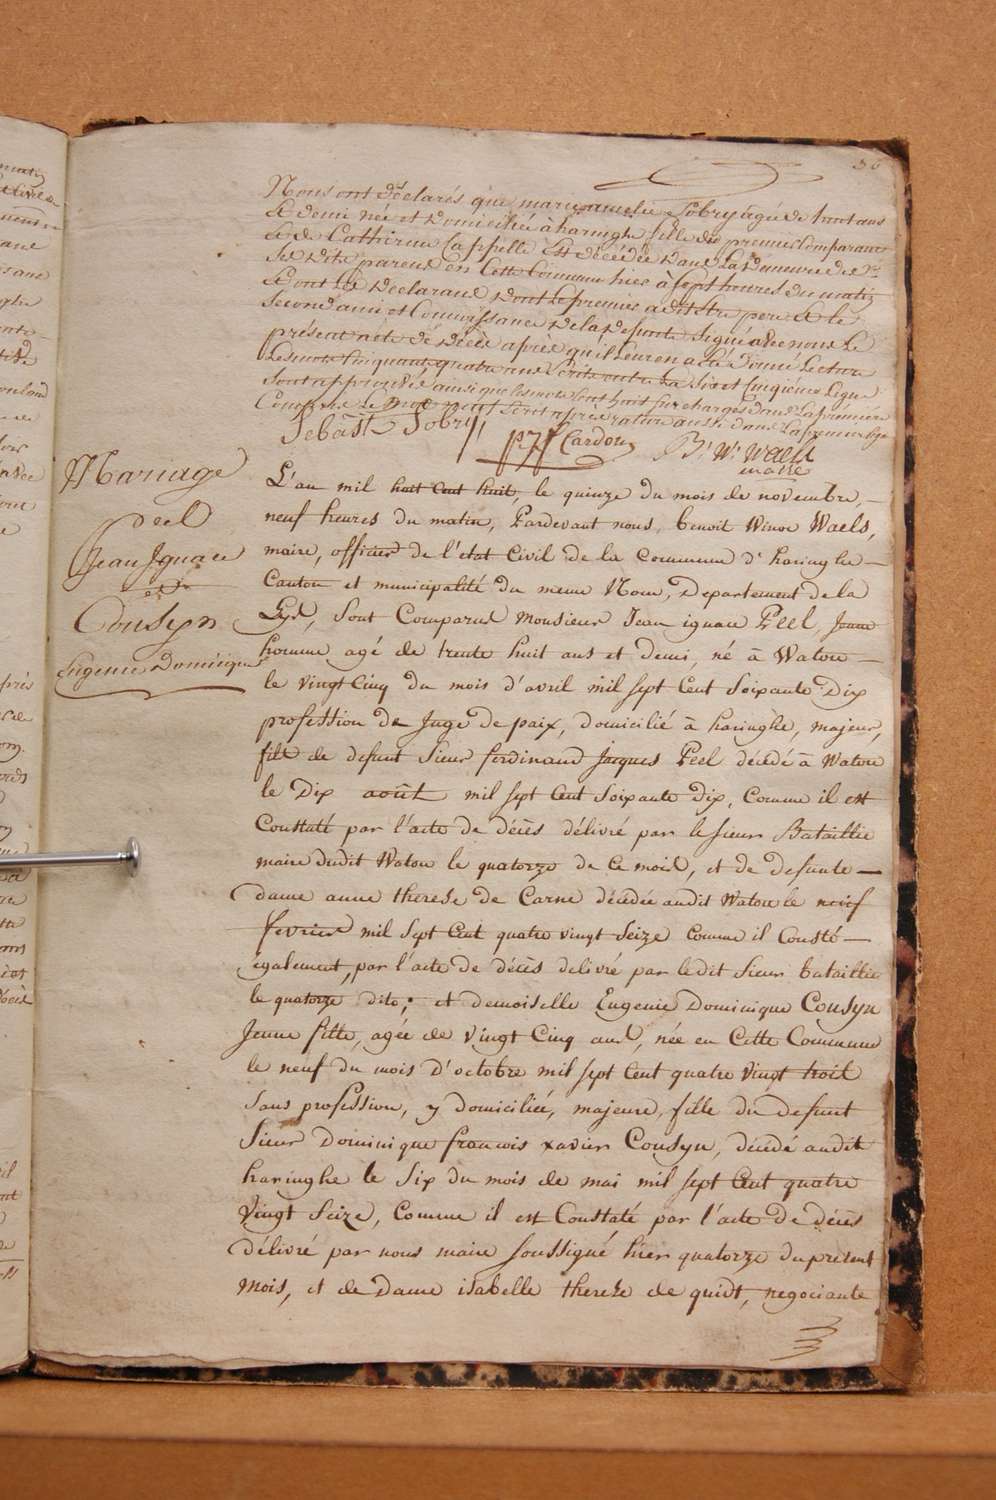 36
Nous ont déclarés que marie amelie Sobry agée de huit ans
& demi née et domiciliée à haringhe fille du premier Comparant
& de Catherine Cappelle Est décédée dans La demeure de
Ses dits parens en Cette Commune hier à Sept heures du matin
& ont Les Declarans dont Le premier a dit être pere & le
Second ami et Connoissance de la Defunte Signé avec nous Le
présent acte de décès après qu'il Leur en a été donné Lecture
Les mots Cinquante quatre ans écrits entre La Six et Cinquième Ligne
Sont approuvés ainsi que les mots Sont huit Surchargés dans La première
Comme Le mot neuf Sont après rature aussi dans La première ligne
Sebast. Sobry
Cardon
B.t W. Waels
maire
Mariage
Peel
Jean Ignace
et
Cousyn
Eugenie Dominique
L'an mil huit Cent huit, le quinze du mois de novembre
neuf heures du matin, Pardevant nous, benoit Winoc Waels,
maire, officier de l'etat Civil de la Commune d'haringhe
Canton et municipalité du meme Nom, Departement de la
Lys, sont Comparus Monsieur Jean ignace Peel, Jeune
homme agé de trente huit ans et demi, né à Watou
le vingt Cinq du mois d'avril mil sept Cent Soixante Dix
profession de Juge de paix, domicilié à haringhe, majeur,
fils de defunt Sieur ferdinand Jacques Peel décédé à Watou
le Dix août mil sept Cent Soixante dix, Comme il est
Constaté par l'acte de décès délivré par le sieur Bataillie
maire dudit Watou le quatorze de Ce mois, et de defunte
dame anne therese de Carne décédée audit Watou le neuf
fevrier mil sept Cent quatre vingt Seize Comme il Consté
également, par l'acte de décès delivré par ledit Sieur bataillie
le quatorze dito; et demoiselle Eugenie Dominique Cousyn
Jeune fille, agée de Vingt Cinq ans, née en Cette Commune
le neuf du mois d'octobre mil sept Cent quatre Vingt trois
Sans profession, y domiciliée, majeure, fille du defunt
Sieur Dominique francois xavier Cousyn, décédé audit
haringhe le Six du mois de mai mil sept Cent quatre
Vingt Seize, Comme il est Constaté par l'acte de décès
délivré par nous maire soussigné hier quatorze du présent
mois, et de Dame isabelle thereze de quidt, negociante